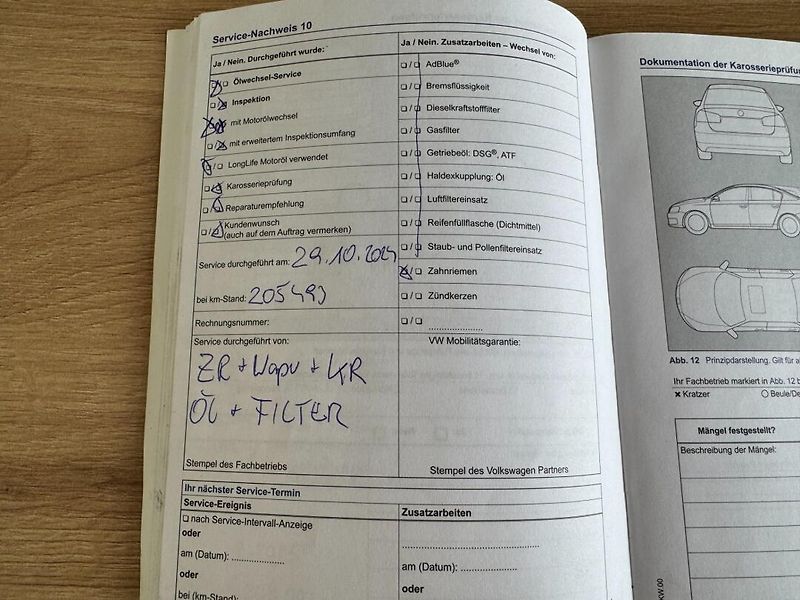 Service-Nachweis 10
Ja / Nein. Durchgeführt wurde:
Ölwechsel-Service
Inspektion
mit Motorölwechsel
mit erweitertem Inspektionsumfang
LongLife Motoröl verwendet
Karosserieprüfung
Reparaturempfehlung
Kundenwunsch
(auch auf dem Auftrag vermerken)
Service durchgeführt am: 29.10.2024
bei km-Stand: 205493
Rechnungsnummer:
Service durchgeführt von:
ZR + Wapu + KR
Öl + FILTER
Stempel des Fachbetriebs
Ja / Nein. Zusatzarbeiten – Wechsel von:
AdBlue®
Bremsflüssigkeit
Dieselkraftstofffilter
Gasfilter
Getriebeöl: DSG®, ATF
Haldexkupplung: Öl
Luftfiltereinsatz
Reifenfüllflasche (Dichtmittel)
Staub- und Pollenfiltereinsatz
Zahnriemen
Zündkerzen
VW Mobilitätsgarantie:
Stempel des Volkswagen Partners
Ihr nächster Service-Termin
Service-Ereignis
nach Service-Intervall-Anzeige
oder
am (Datum):
oder
bei (km-Stand)
Zusatzarbeiten
am (Datum):
oder
Dokumentation der Karosserieprüfun
Abb. 12 Prinzipdarstellung. Gilt für
Ihr Fachbetrieb markiert in Abb. 12
Kratzer
Beule/De
Mängel festgestellt?
Beschreibung der Mängel: